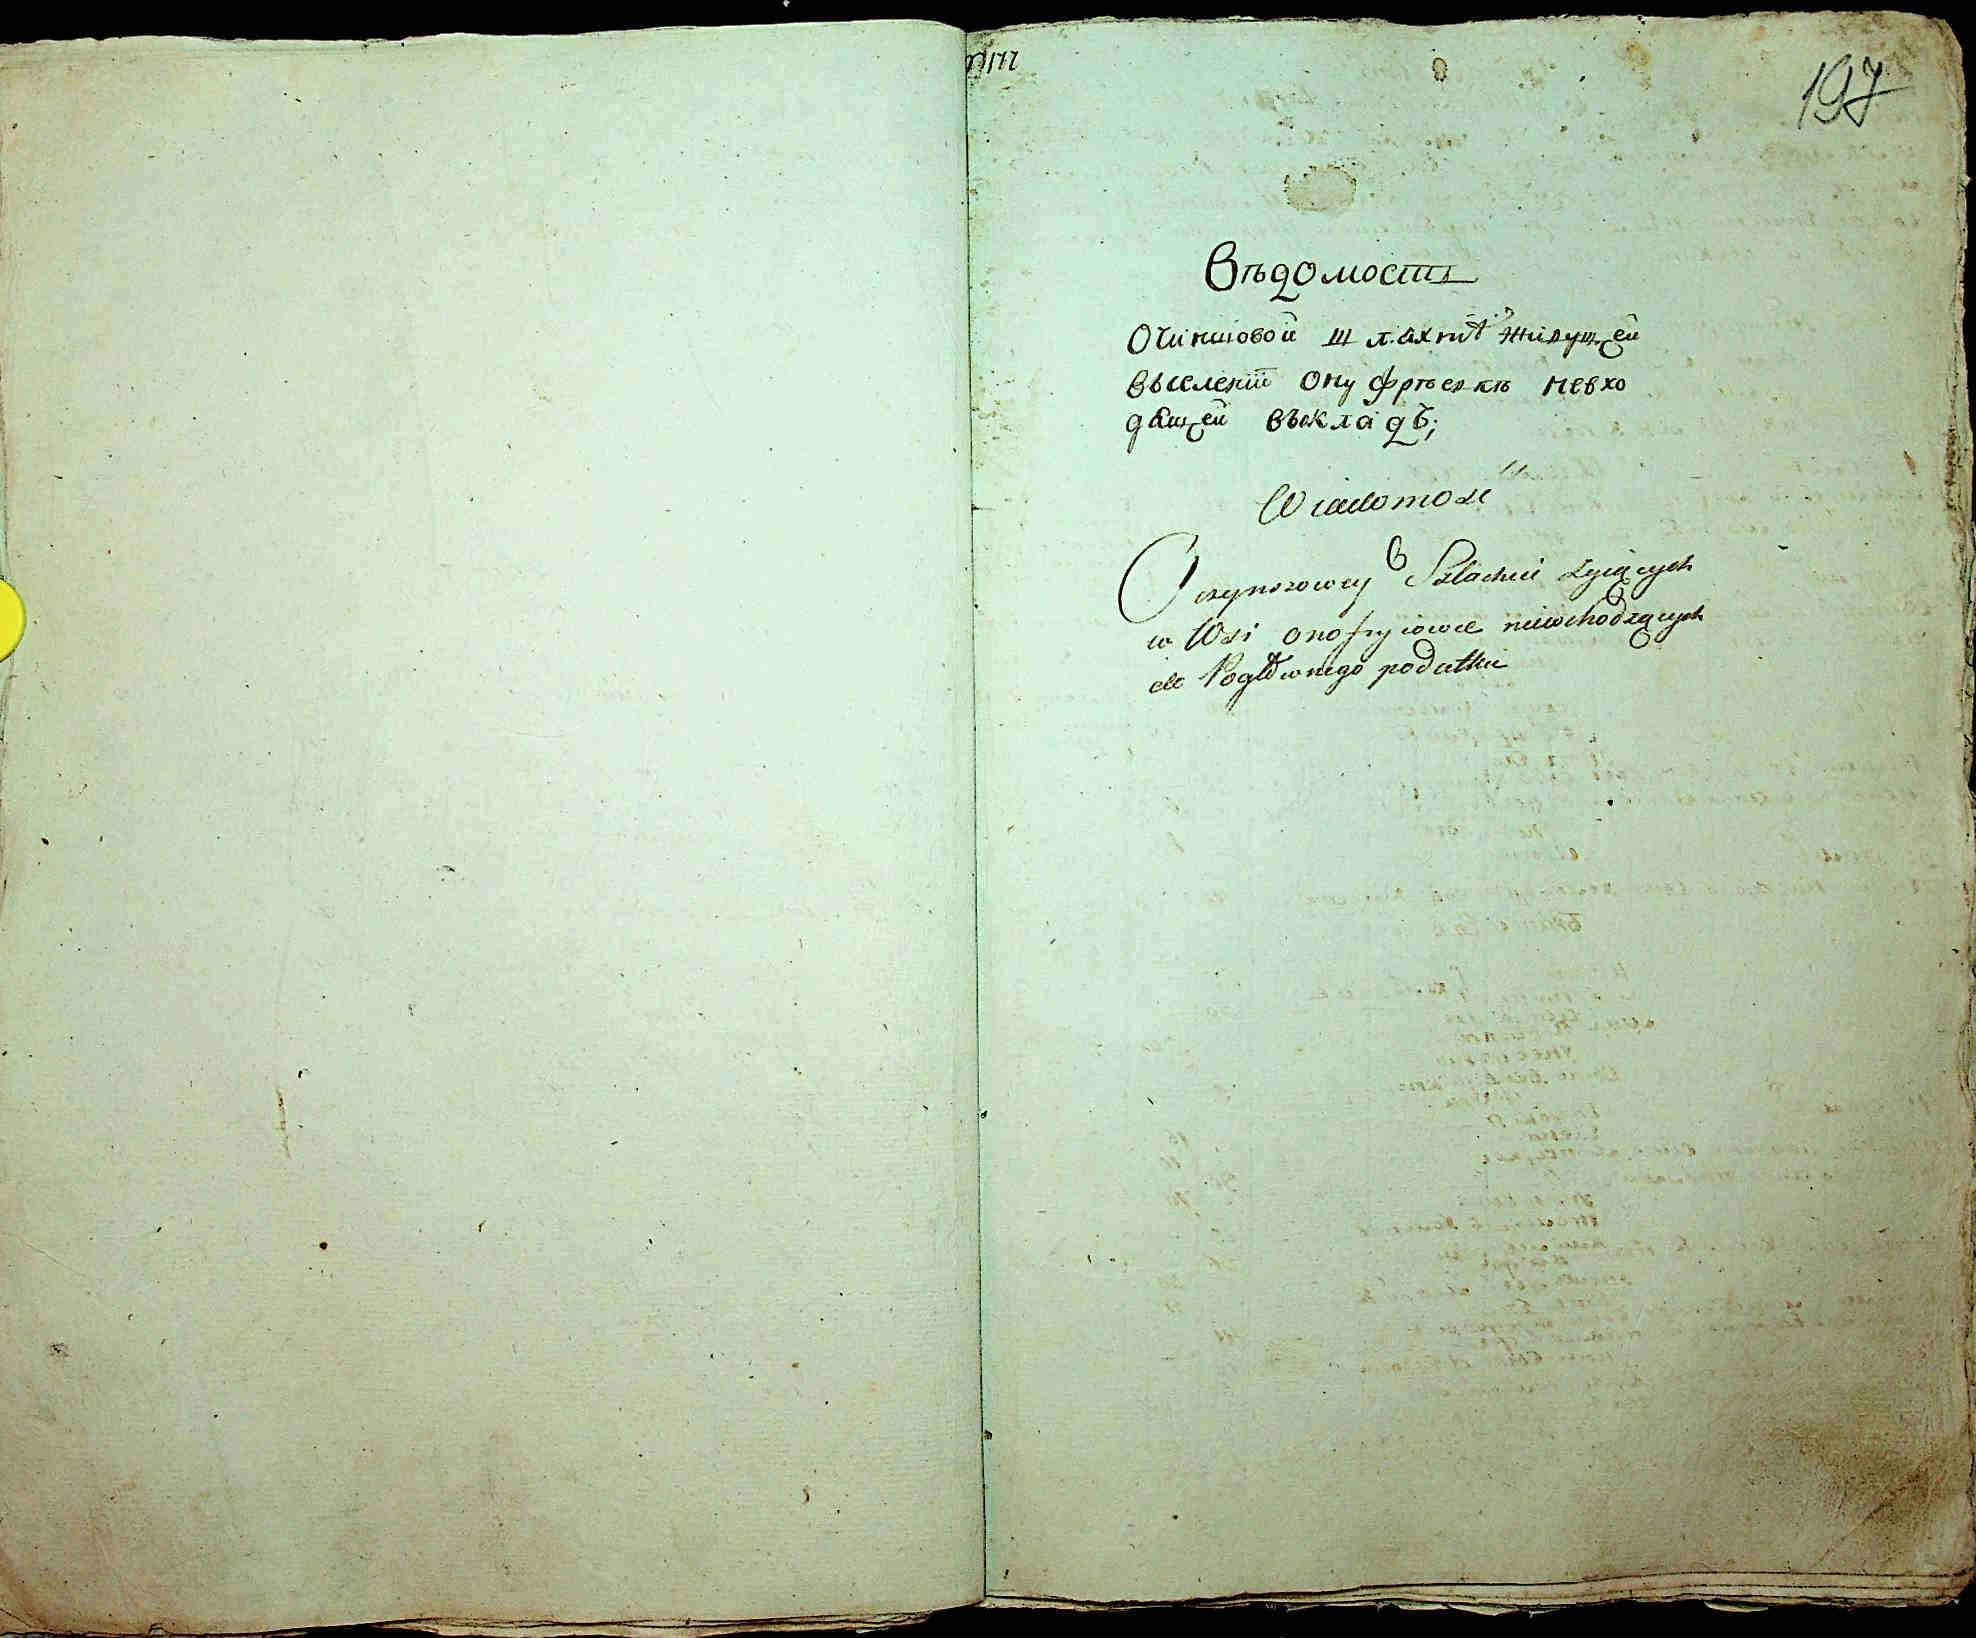 197
Вѣдомость
Очиншовой шляхтѣ живущей
вѣселенiи Онуфрѣевкѣ невхо
дящей въокладѣ;
Wiadomość
O czynszowey Szlachcie żyiących
w Wsi Onofryiowce niewchodzących
do Pogłównego podatku